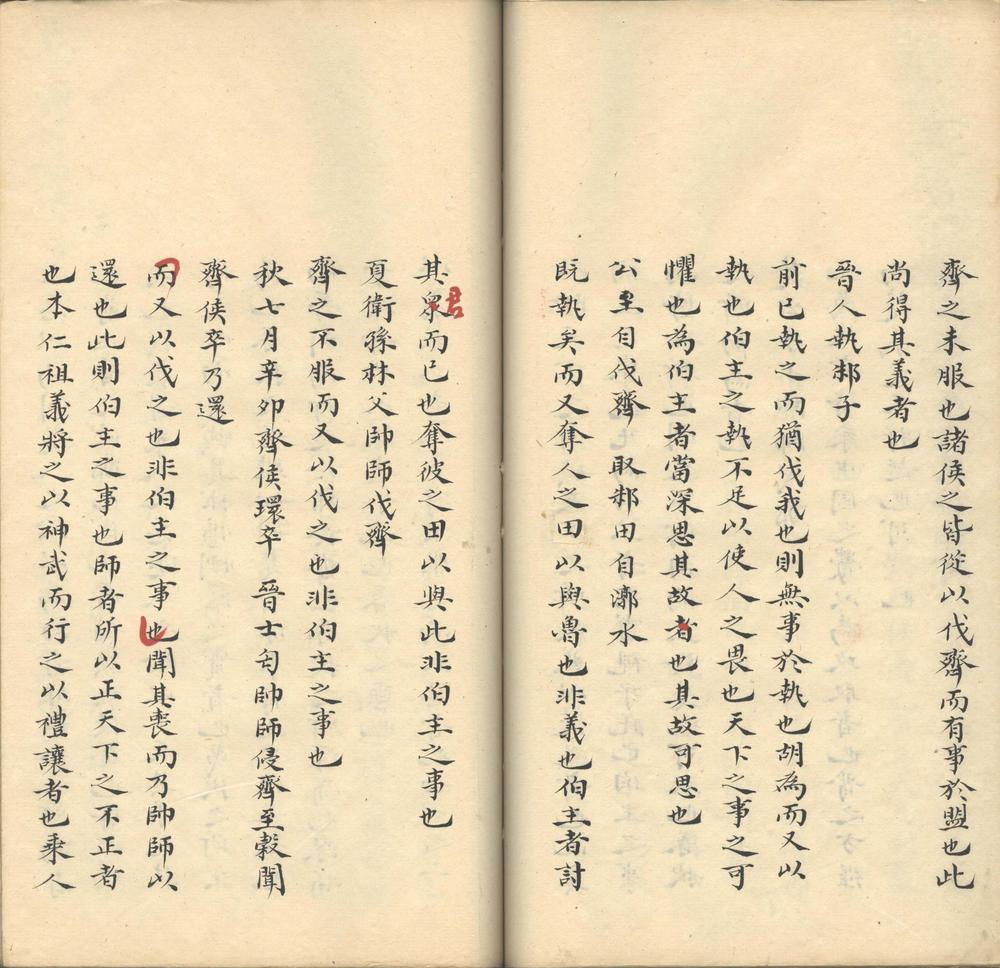 齊之未服也諸侯之皆從以伐齊而有事於盟也此
尚得其義者也
晉人執邾子
前已執之而猶伐我也則無事於執也胡為而又以
執也伯主之執不足以使人之畏也天下之事之可
懼也為伯主者當深思其故者也其故可思也
公至自伐齊 取邾田自漷水
既執矣而又奪人之田以與魯也非義也伯主者討
其眾而已也奪彼之田以與此非伯主之事也
君
夏衛孫林父帥師伐齊
齊之不服而又以伐之也非伯主之事也
秋七月辛卯齊侯環卒 晉士匄帥師侵齊至穀聞
齊侯卒乃還
而又以伐之也非伯主之事也聞其喪而乃帥師以
還也此則伯主之事也師者所以正天下之不正者
也本仁祖義將之以神武而行之以禮讓者也乘人